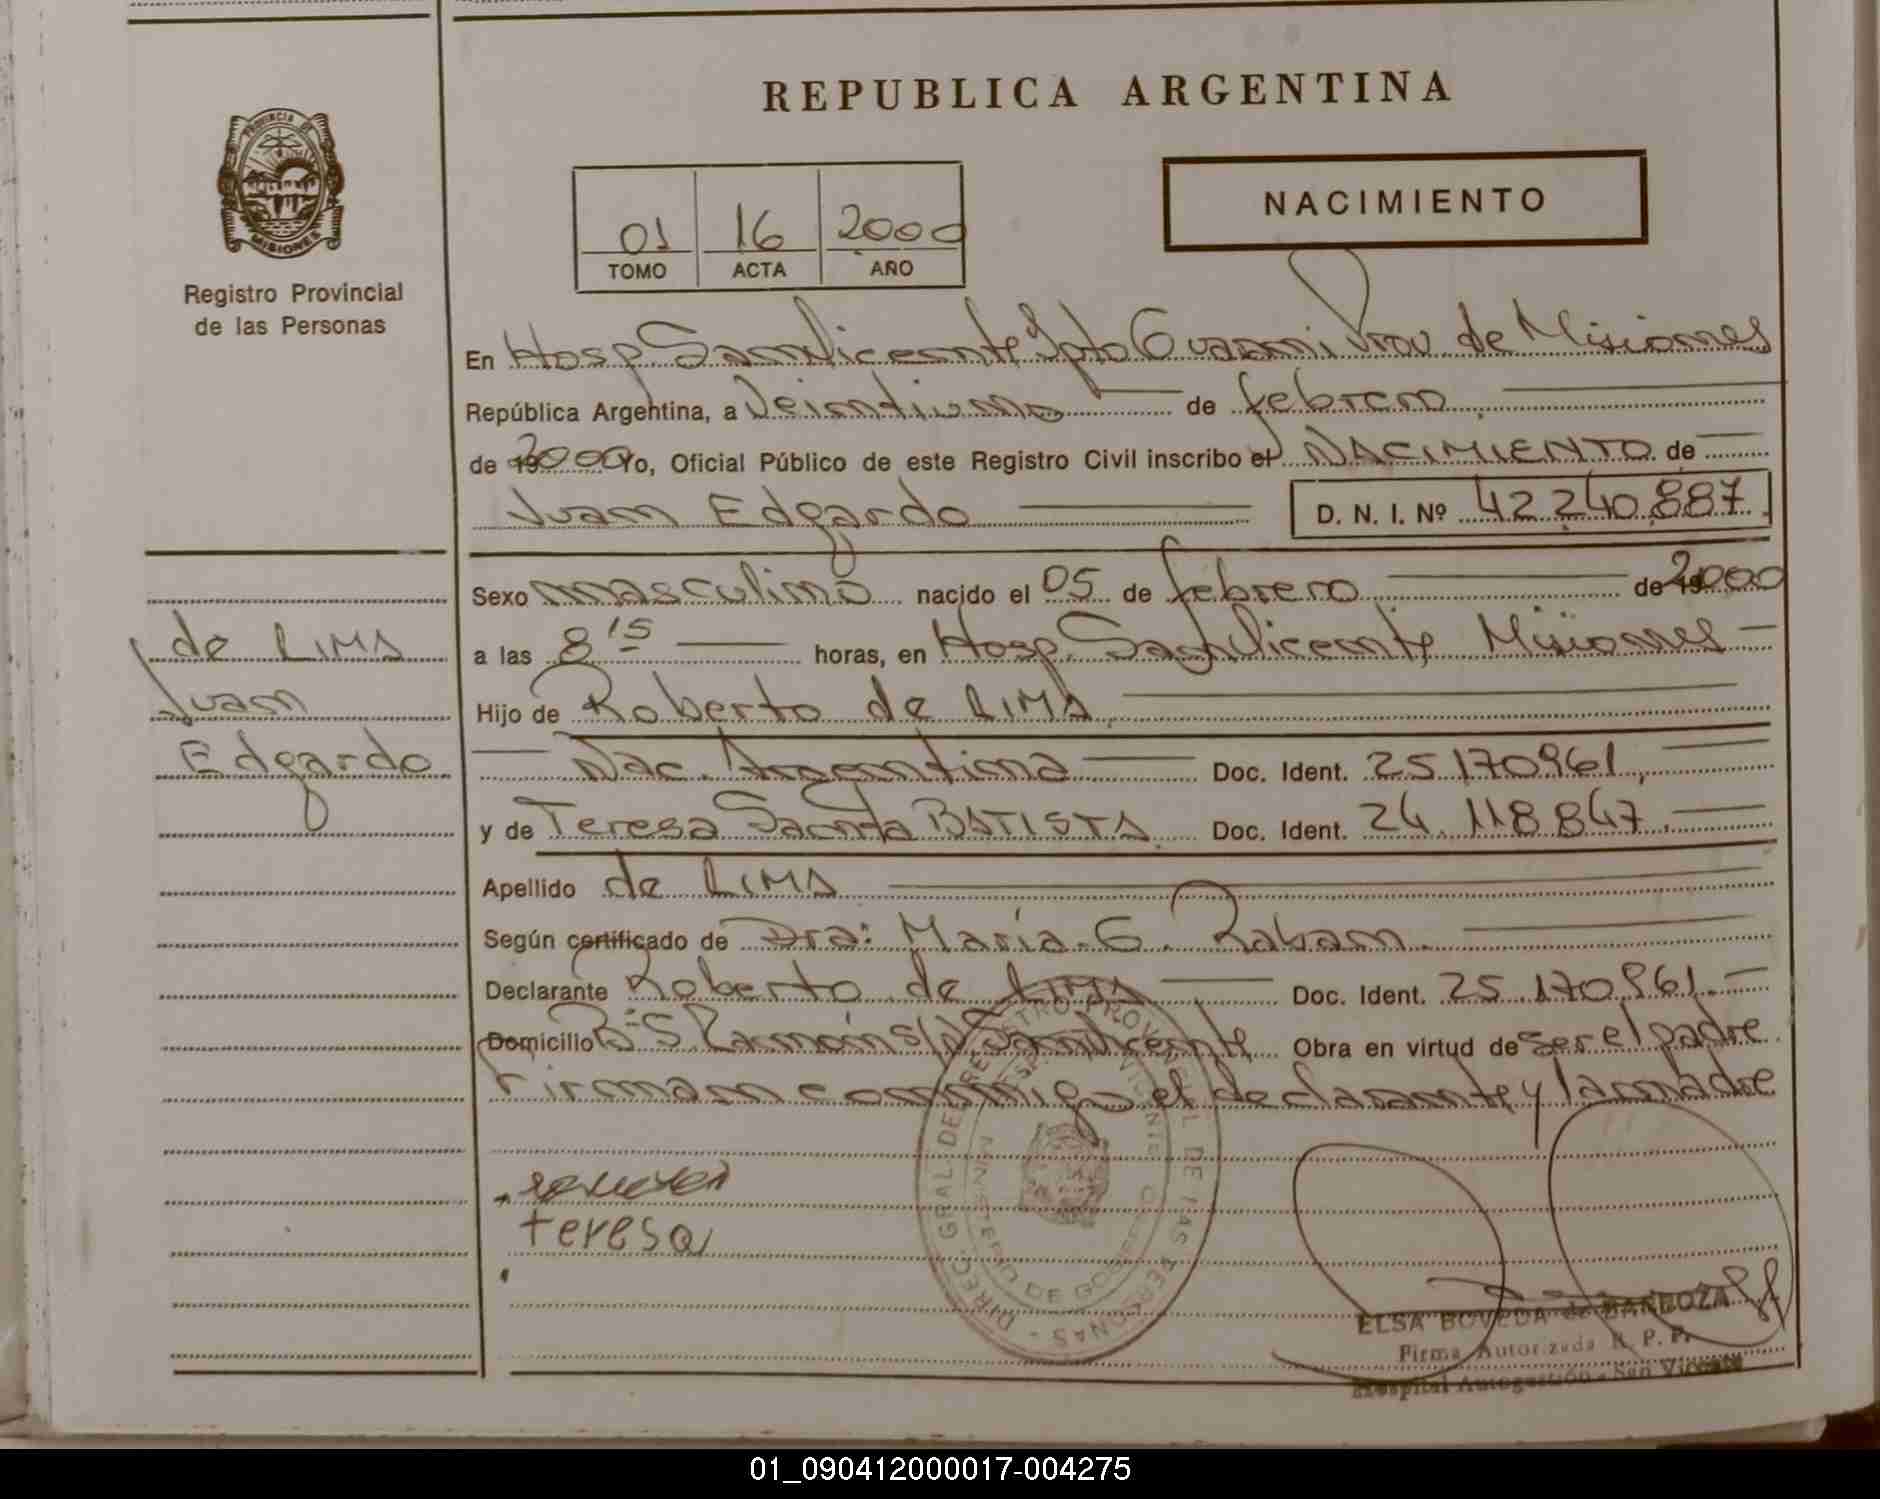 REPUBLICA ARGENTINA
PROVINCIA DE
MISIONES
Registro Provincial
de las Personas
01 16 2000
TOMO ACTA AÑO
NACIMIENTO
En Hosp San Vicente Dpto Guarani Prov de Misiones
República Argentina, a Veintiuno de febrero
de 2000 Yo, Oficial Público de este Registro Civil inscribo el NACIMIENTO de
Juan Edgardo D. N. I. Nº 42 240.887
Sexo masculino nacido el 05 de febrero de 2000
a las 8 15 horas, en Hosp San Vicente Misiones
Hijo de Roberto de LIMA
Nac. Argentina Doc. Ident. 25.170.961
y de Teresa Santa BATISTA Doc. Ident. 24.118.847
Apellido de LIMA
Según certificado de Dra: María G. Raban
Declarante Roberto de LIMA Doc. Ident. 25.170.961
Domicilio Bº S. Ramón S/N San Vicente Obra en virtud de ser el padre
Firman conmigo el declarante y la madre
de LIMA
Juan
Edgardo
teresa
DIREC. GRAL DEL REGISTRO PROVINCIAL DE LAS PERSONAS
MINISTERIO DE GOBIERNO
ELSA BOVEDA de BARBOZA
Firma Autorizada R. P. P.
Hospital Autogestión - San Vicente
01_090412000017-004275